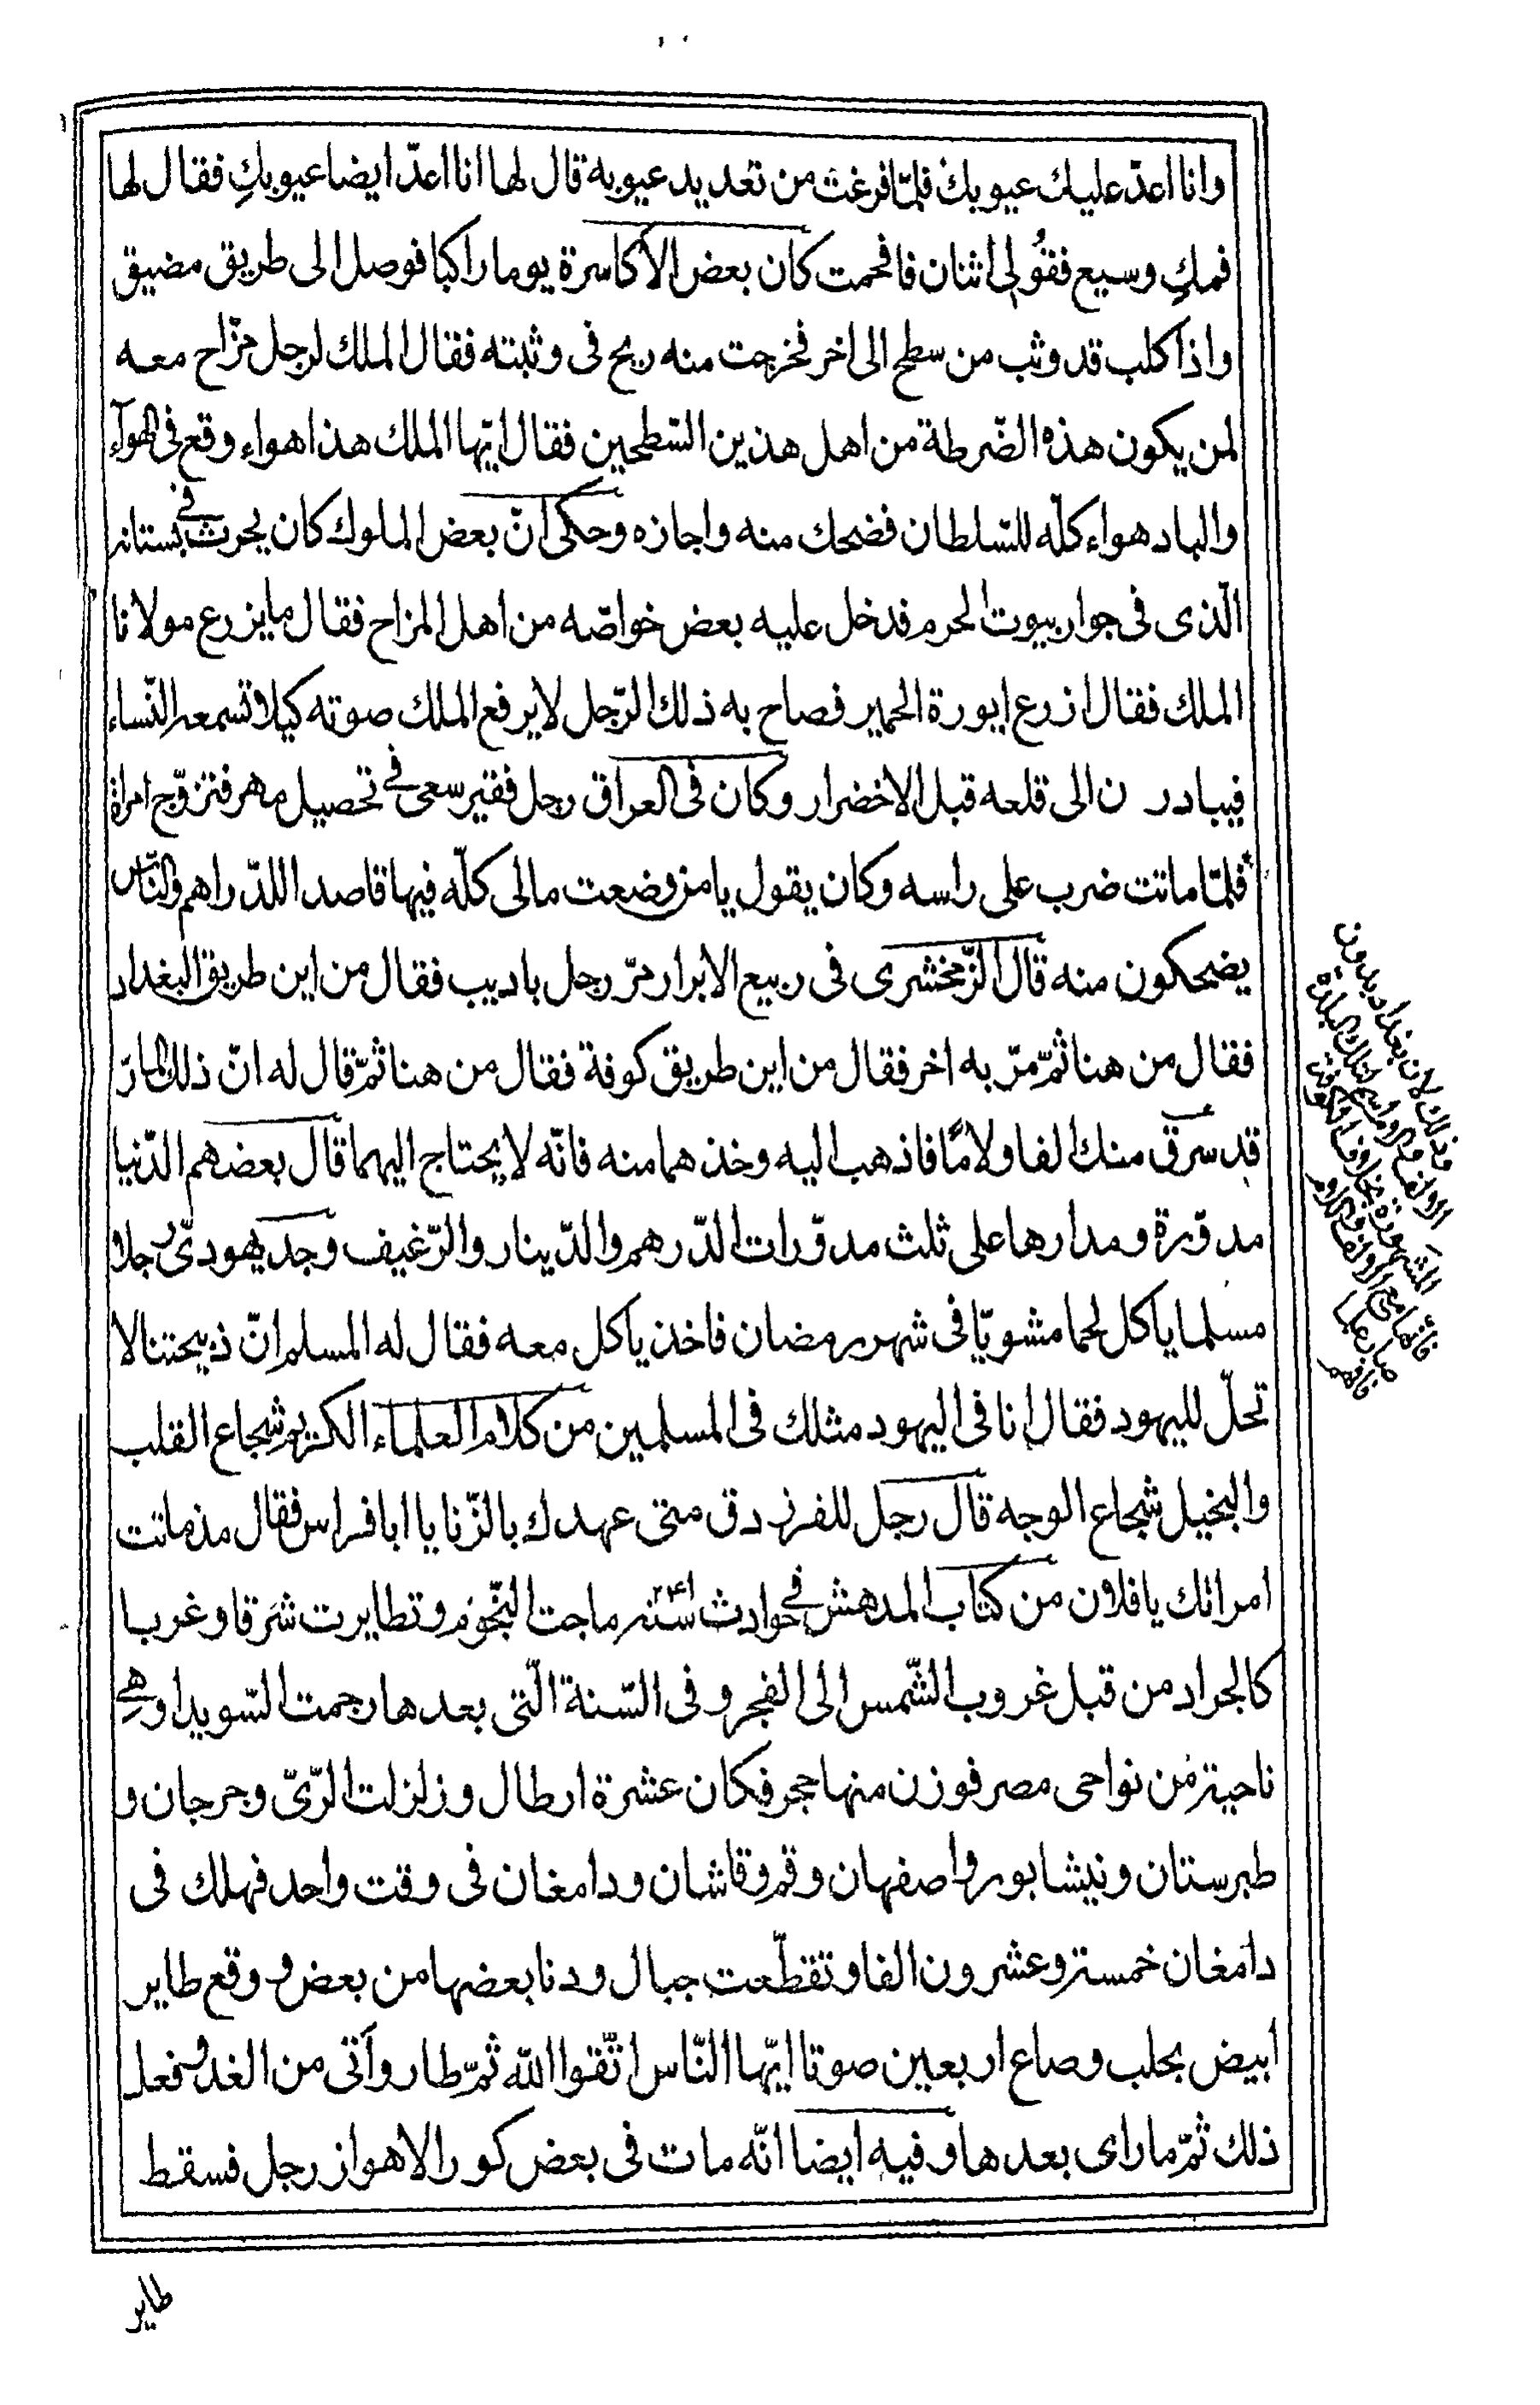 وانا اعدّ عليك عيوبك فلمّا فرغت من تعديد عيوبه قال لها انا اعدّ ايضا عيوبكِ فقال لها
فمكِ وسيع فقُولى اثنان فافحمت كان بعض الاكاسرة يوما راكبا فوصل الى طريق مضيق
واذا كلب قد وثب من سطح الى اخر فخرجت منه ريح فى وثبته فقال الملك لرجل مزّاح معه
لمن يكون هذه الضّرطة من اهل هذين السّطحين فقال ايّها الملك هذا هواء وقع فى الهوآء
والهاد هواء كلّه للسّلطان فضحك منه واجازه وحكى انّ بعض الملوك كان يحرث فى بستانه
الّذى فى جوار بيوت الحرم فدخل عليه بعض خواصّه من اهل المزاح فقال ما يزرع مولانا
الملك فقال ازرع ايورة الحمير فصاح به ذلك الرّجل لا يرفع الملك صوته كيلا تسمعه النّساء
فيبادرن الى قلعه قبل الاخضرار وكان فى العراق رجل فقير سعى فى تحصيل مهر فتزوّج امراة
فلمّا ماتت ضرب على راسه وكان يقول يا من وضعت مالى كلّه فيها قاصدا للدّراهم والنّاس
يضحكون منه قال الزّمخشرى فى ربيع الابرار مرّ رجل باديب فقال من اين طريق البغداد
فقال من هنا ثمّ مرّ به اخر فقال من اين طريق كوفة فقال من هنا ثمّ قال له انّ ذلك المارّ
قد سرق منك الفا ولامًا فاذهب اليه وخذهما منه فانّه لا يحتاج اليهما قال بعضهم الدّنيا
مدوّرة ومدارها على ثلث مدوّرات الدّرهم والدّينار والرّغيف وجد يهودىّ رجلا
مسلما ياكل لحما مشويّا فى شهر رمضان فاخذ ياكل معه فقال له المسلم انّ ذبيحتنا لا
تحلّ لليهود فقال انا فى اليهود مثلك فى المسلمين من كلام العلماء الكريم شجاع القلب
والبخيل شجاع الوجه قال رجل للفرزدق متى عهدك بالزّنا يا ابا فراس فقال مذ ماتت
امراتك يا فلان من كتاب المدهش فى حوادث سنه ٢٤١ ماجت النّجوم وتطايرت شرقا وغربا
كالجراد من قبل غروب الشّمس الى الفجر وفى السّنة الّتى بعدها رجمت السّويدا وهى
ناحية من نواحى مصر فوزن منها حجر فكان عشرة ارطال وزلزلت الرّىّ وجرجان و
طبرستان ونيشابور واصفهان وقم وقاشان ودامغان فى وقت واحد فهلك فى
دامغان خمسة وعشرون الفا وتقطّعت جبال ودنا بعضها من بعض ووقع طاير
ابيض بحلب وصاع اربعين صوتا ايّها النّاس اتّقوا الله ثمّ طار وآتى من الغد وفعل
ذلك ثمّ ما راى بعدها وفيه ايضا انّه مات فى بعض كور الاهواز رجل فسقط
وذلك لان بغداد بدون
الالف واللام اسم لتلك البلدة
المشهورة بخلاف الكوفة
فانها مع الالف واللام
صار علما
فافهم
طاير